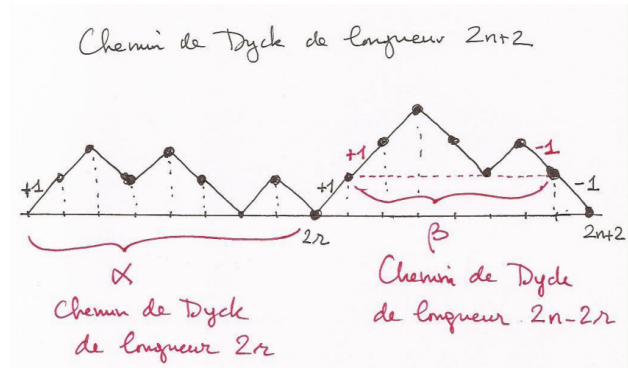 Chemin de Dyck de longueur 2n+2
+1
+1
+1
-1
-1
2r
2n+2
α
β
Chemin de Dyck
de longueur 2r
Chemin de Dyck
de longueur 2n-2r